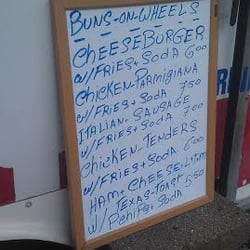 BUNS-ON-WHEELS
CHEESEBURGER
W/FRIES+SODA 600
CHICKEN-PARMIGIANA
W/FRIES+SODA 750
ITALIAN-SAUSAGE
W/FRIES+SODA 700
CHICKEN-TENDERS
W/FRIES+SODA 600
HAM+CHEESE-L+T+M
W/TEXAS-TOAST 550
W/PCHIPS+SODA